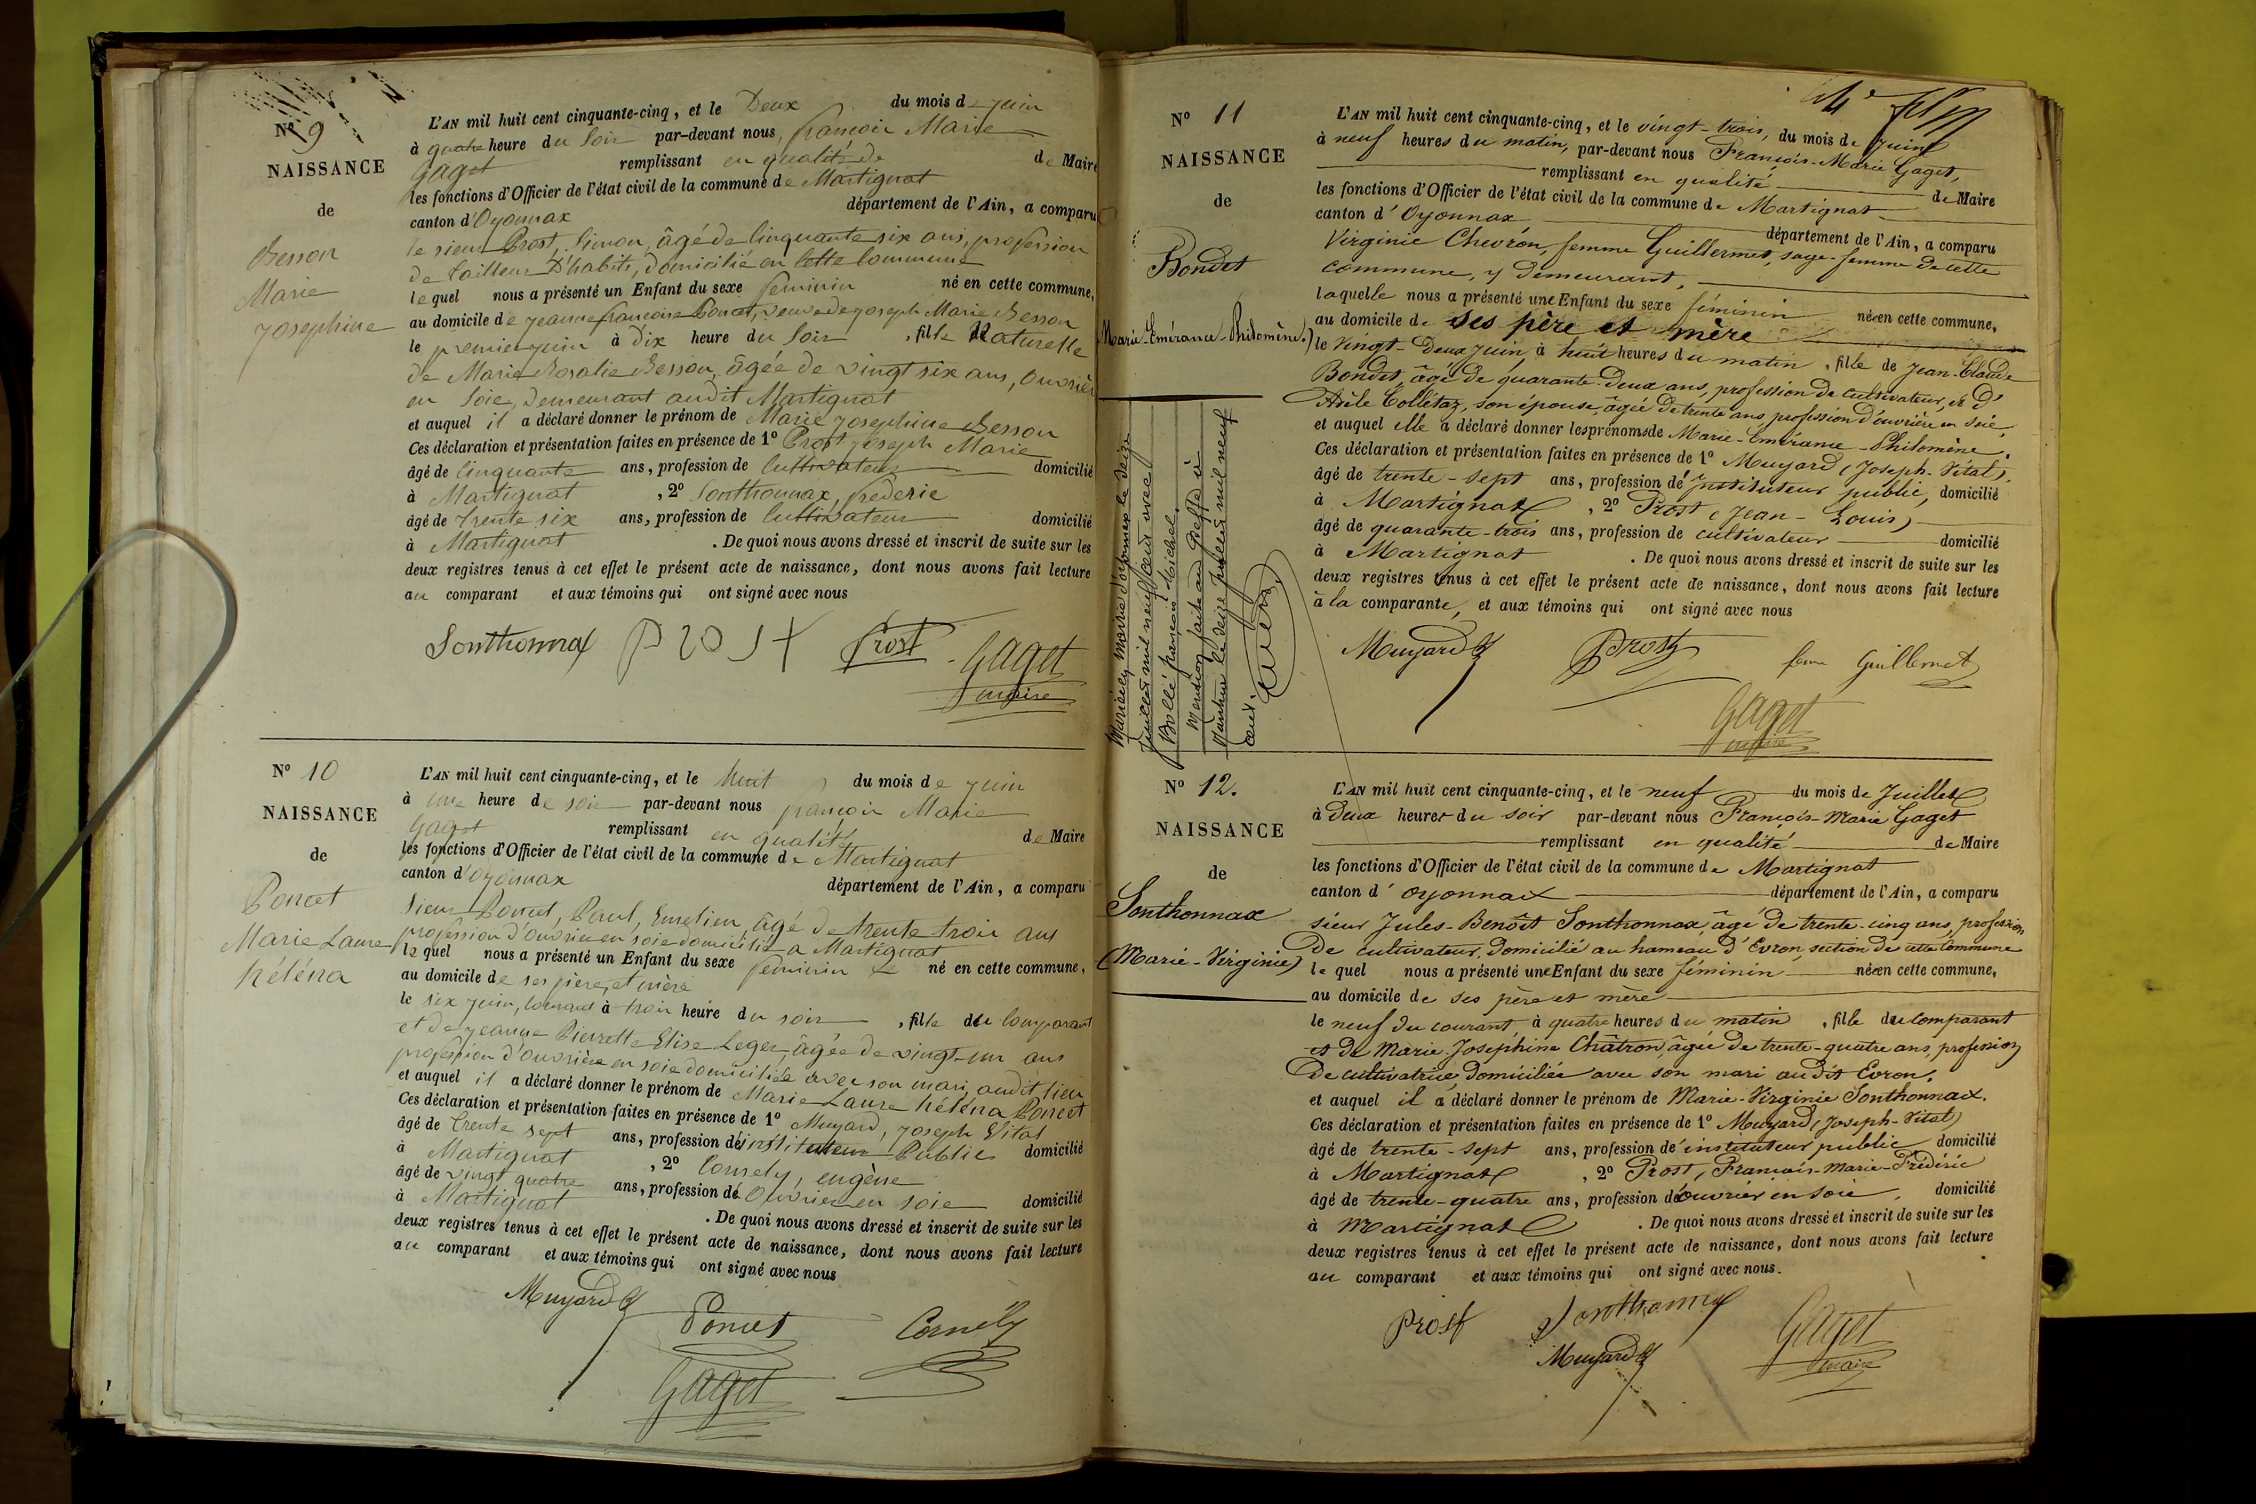 Nº 9
NAISSANCE
de
Besson
Marie
Josephine
L'AN mil huit cent cinquante-cinq, et le Deux du mois de juin
à quatre heure du soir par-devant nous, françois Marie
Gaget remplissant en qualité de de Maire
les fonctions d'Officier de l'état civil de la commune de Martignat
canton d'Oyonnax département de l'Ain, a comparu
le sieur Prost, Simon, âgé de Cinquante six ans, profession
de tailleur D'habits, domicilié en cette Commune
lequel nous a présenté un Enfant du sexe feminin né en cette commune,
au domicile de jeanne françoise Poncet, veuve de joseph Marie Besson
le premier juin à dix heure du soir, fille Naturelle
de Marie Rosalie Besson, âgée de vingt six ans, ouvrière
en Soie, demeurant audit Martignat
et auquel il a déclaré donner le prénom de Marie josephine Besson
Ces déclaration et présentation faites en présence de 1º Prost joseph Marie
âgé de Cinquante ans, profession de Cultivateur domicilié
à Martignat, 2º Sonthonnax, frederic
âgé de trente six ans, profession de Cultivateur domicilié
à Martignat. De quoi nous avons dressé et inscrit de suite sur les
deux registres tenus à cet effet le présent acte de naissance, dont nous avons fait lecture
au comparant et aux témoins qui ont signé avec nous
Sonthonnax Prost Prost Gaget
maire
Nº 10
NAISSANCE
de
Poncet
Marie Laure
héléna
L'AN mil huit cent cinquante-cinq, et le huit du mois de juin
à une heure de soir par-devant nous françois Marie
Gaget remplissant en qualité de Maire
les fonctions d'Officier de l'état civil de la commune de Martignat
canton d'Oyonnax département de l'Ain, a comparu
sieur Poncet, Paul, âgé de trente trois ans
profession d'ouvrier en soie domicilié a Martignat
lequel nous a présenté un Enfant du sexe feminin né en cette commune,
au domicile de ses père, et mère
le six juin, courant à trois heure du soir, fille du comparant
et de jeanne Pierrette Elise Leger, âgée de vingt-un ans
profession d'ouvrière en soie domiciliée avec son mari audit lieu
et auquel il a déclaré donner le prénom de Marie Laure héléna Poncet
Ces déclaration et présentation faites en présence de 1º Muyard, joseph Vital
âgé de trente sept ans, profession d'instituteur Public domicilié
à Martignat, 2º Cornely, eugène
âgé de vingt quatre ans, profession d'ouvrier en soie domicilié
à Martignat. De quoi nous avons dressé et inscrit de suite sur les
deux registres tenus à cet effet le présent acte de naissance, dont nous avons fait lecture
au comparant et aux témoins qui ont signé avec nous
Muyard Poncet Cornély
Gaget
Nº 11
NAISSANCE
de
Bondet
(Marie-Emérance-Philomène.)
Mariée en mairie d'oyonnax le seize
juillet mil neuf cent avec
Bollé françois Michel.
Mention faite au greffe à
Nantua le seize juillet mil neuf
cent.
L'AN mil huit cent cinquante-cinq, et le vingt-trois, du mois de Juin
à neuf heures du matin, par-devant nous François-Marie Gaget,
remplissant en qualité de Maire
les fonctions d'Officier de l'état civil de la commune de Martignat
canton d'Oyonnax département de l'Ain, a comparu
Virginie Chevron, femme Guillermet, sage-femme de cette
commune, y demeurant,
laquelle nous a présenté une Enfant du sexe féminin née en cette commune,
au domicile de ses père et mère
le vingt-deux juin, à huit heures du matin, fille de Jean-Claude
Bondet, âgé de quarante-deux ans, profession de cultivateur, et d'
Adèle Collétaz, son épouse, âgée de trente ans, profession d'ouvrière en soie,
et auquel elle a déclaré donner les prénoms de Marie-Emérance-Philomène.
Ces déclaration et présentation faites en présence de 1º Muyard (Joseph-Vital),
âgé de trente-sept ans, profession d'Instituteur public, domicilié
à Martignat, 2º Prost (Jean-Louis)
âgé de quarante-trois ans, profession de cultivateur domicilié
à Martignat. De quoi nous avons dressé et inscrit de suite sur les
deux registres tenus à cet effet le présent acte de naissance, dont nous avons fait lecture
à la comparante, et aux témoins qui ont signé avec nous
Muyard Prost femme Guillermet
Gaget
maire
Nº 12.
NAISSANCE
de
Sonthonnax
(Marie-Virginie)
L'AN mil huit cent cinquante-cinq, et le neuf du mois de Juillet
à deux heures du soir par-devant nous François-Marie Gaget
remplissant en qualité de Maire
les fonctions d'Officier de l'état civil de la commune de Martignat
canton d'Oyonnax département de l'Ain, a comparu
sieur Jules-Benoît Sonthonnax, âgé de trente-cinq ans, profession
de cultivateur, domicilié au hameau d'Evron, section de cette Commune
lequel nous a présenté une Enfant du sexe féminin née en cette commune,
au domicile de ses père et mère
le neuf du courant, à quatre heures du matin, fille du comparant
et de Marie Joséphine Châtron, âgée de trente-quatre ans, profession
de cultivatrice, domiciliée avec son mari audit Evron.
et auquel il a déclaré donner le prénom de Marie-Virginie Sonthonnax.
Ces déclaration et présentation faites en présence de 1º Muyard (Joseph-Vital)
âgé de trente-sept ans, profession d'instituteur public domicilié
à Martignat, 2º Prost, François-Marie-Frédéric
âgé de trente-quatre ans, profession d'ouvrier en soie, domicilié
à Martignat. De quoi nous avons dressé et inscrit de suite sur les
deux registres tenus à cet effet le présent acte de naissance, dont nous avons fait lecture
au comparant et aux témoins qui ont signé avec nous.
Prost Sonthonnax Gaget
Muyard maire